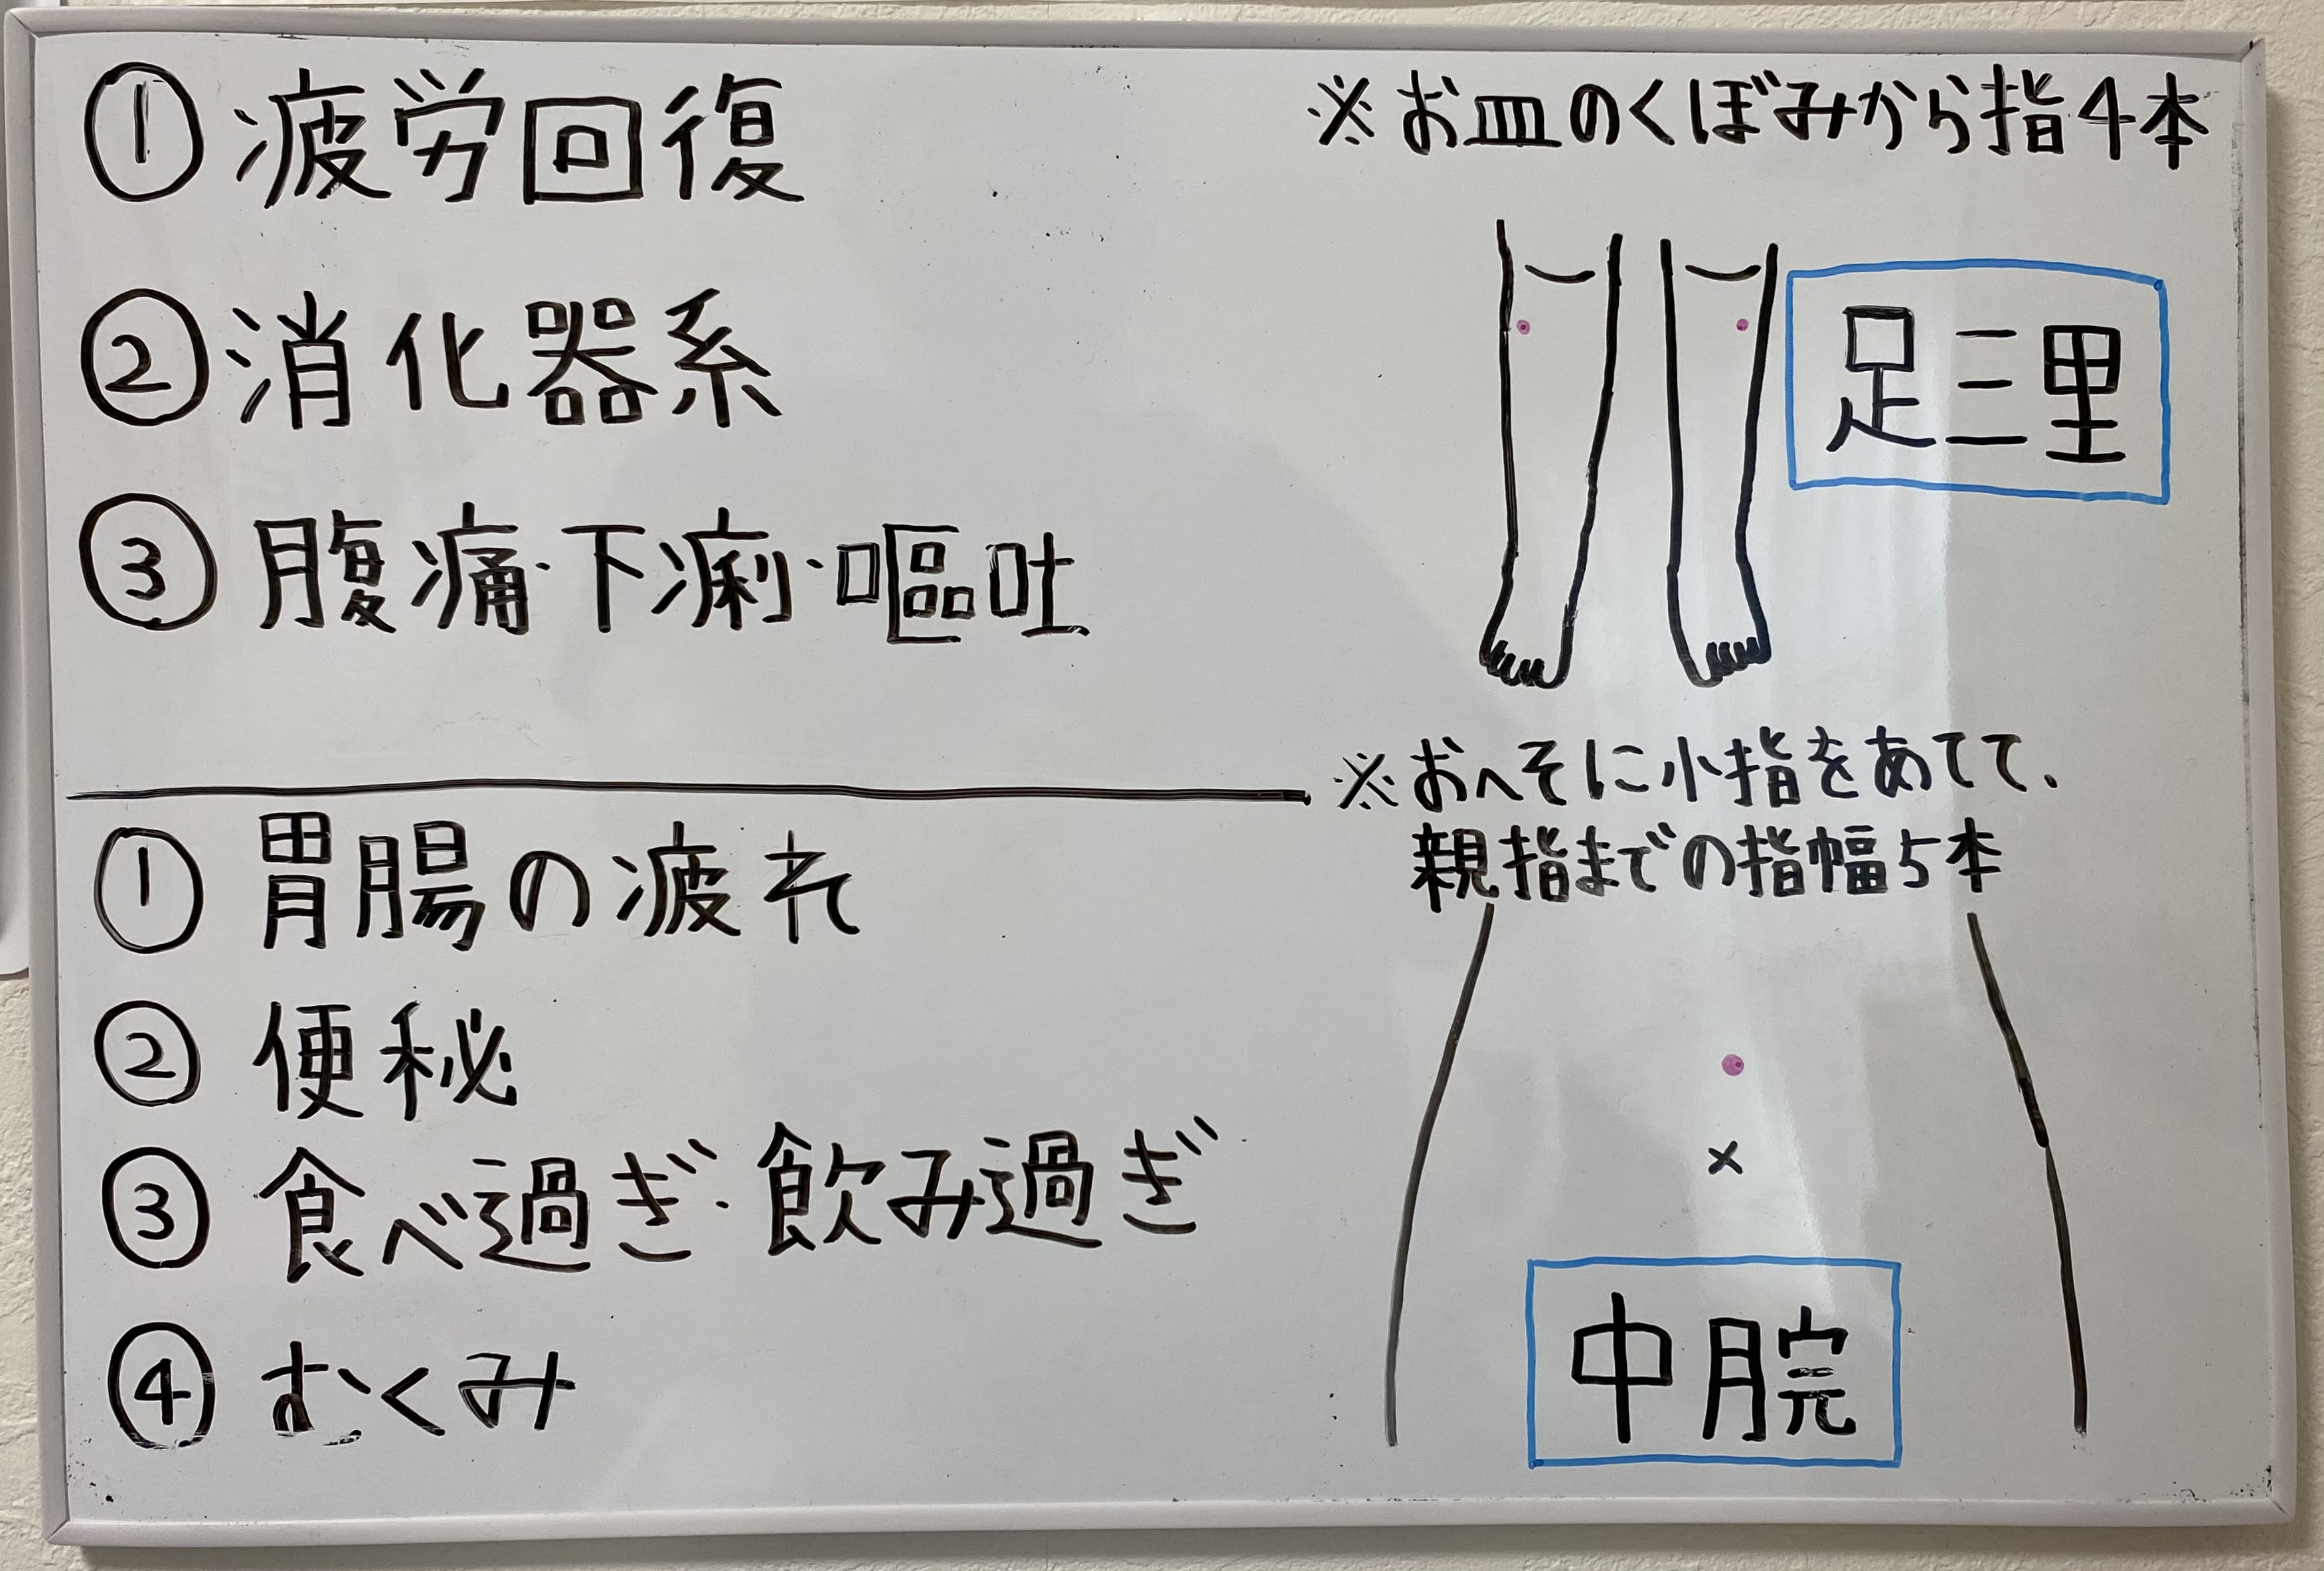 ①疲労回復
②消化器系
③腹痛・下痢・嘔吐
※お皿のくぼみから指4本
足三里
①胃腸の疲れ
②便秘
③食べ過ぎ・飲み過ぎ
④むくみ
※おへそに小指をあてて、
親指までの指幅5本
×
中脘